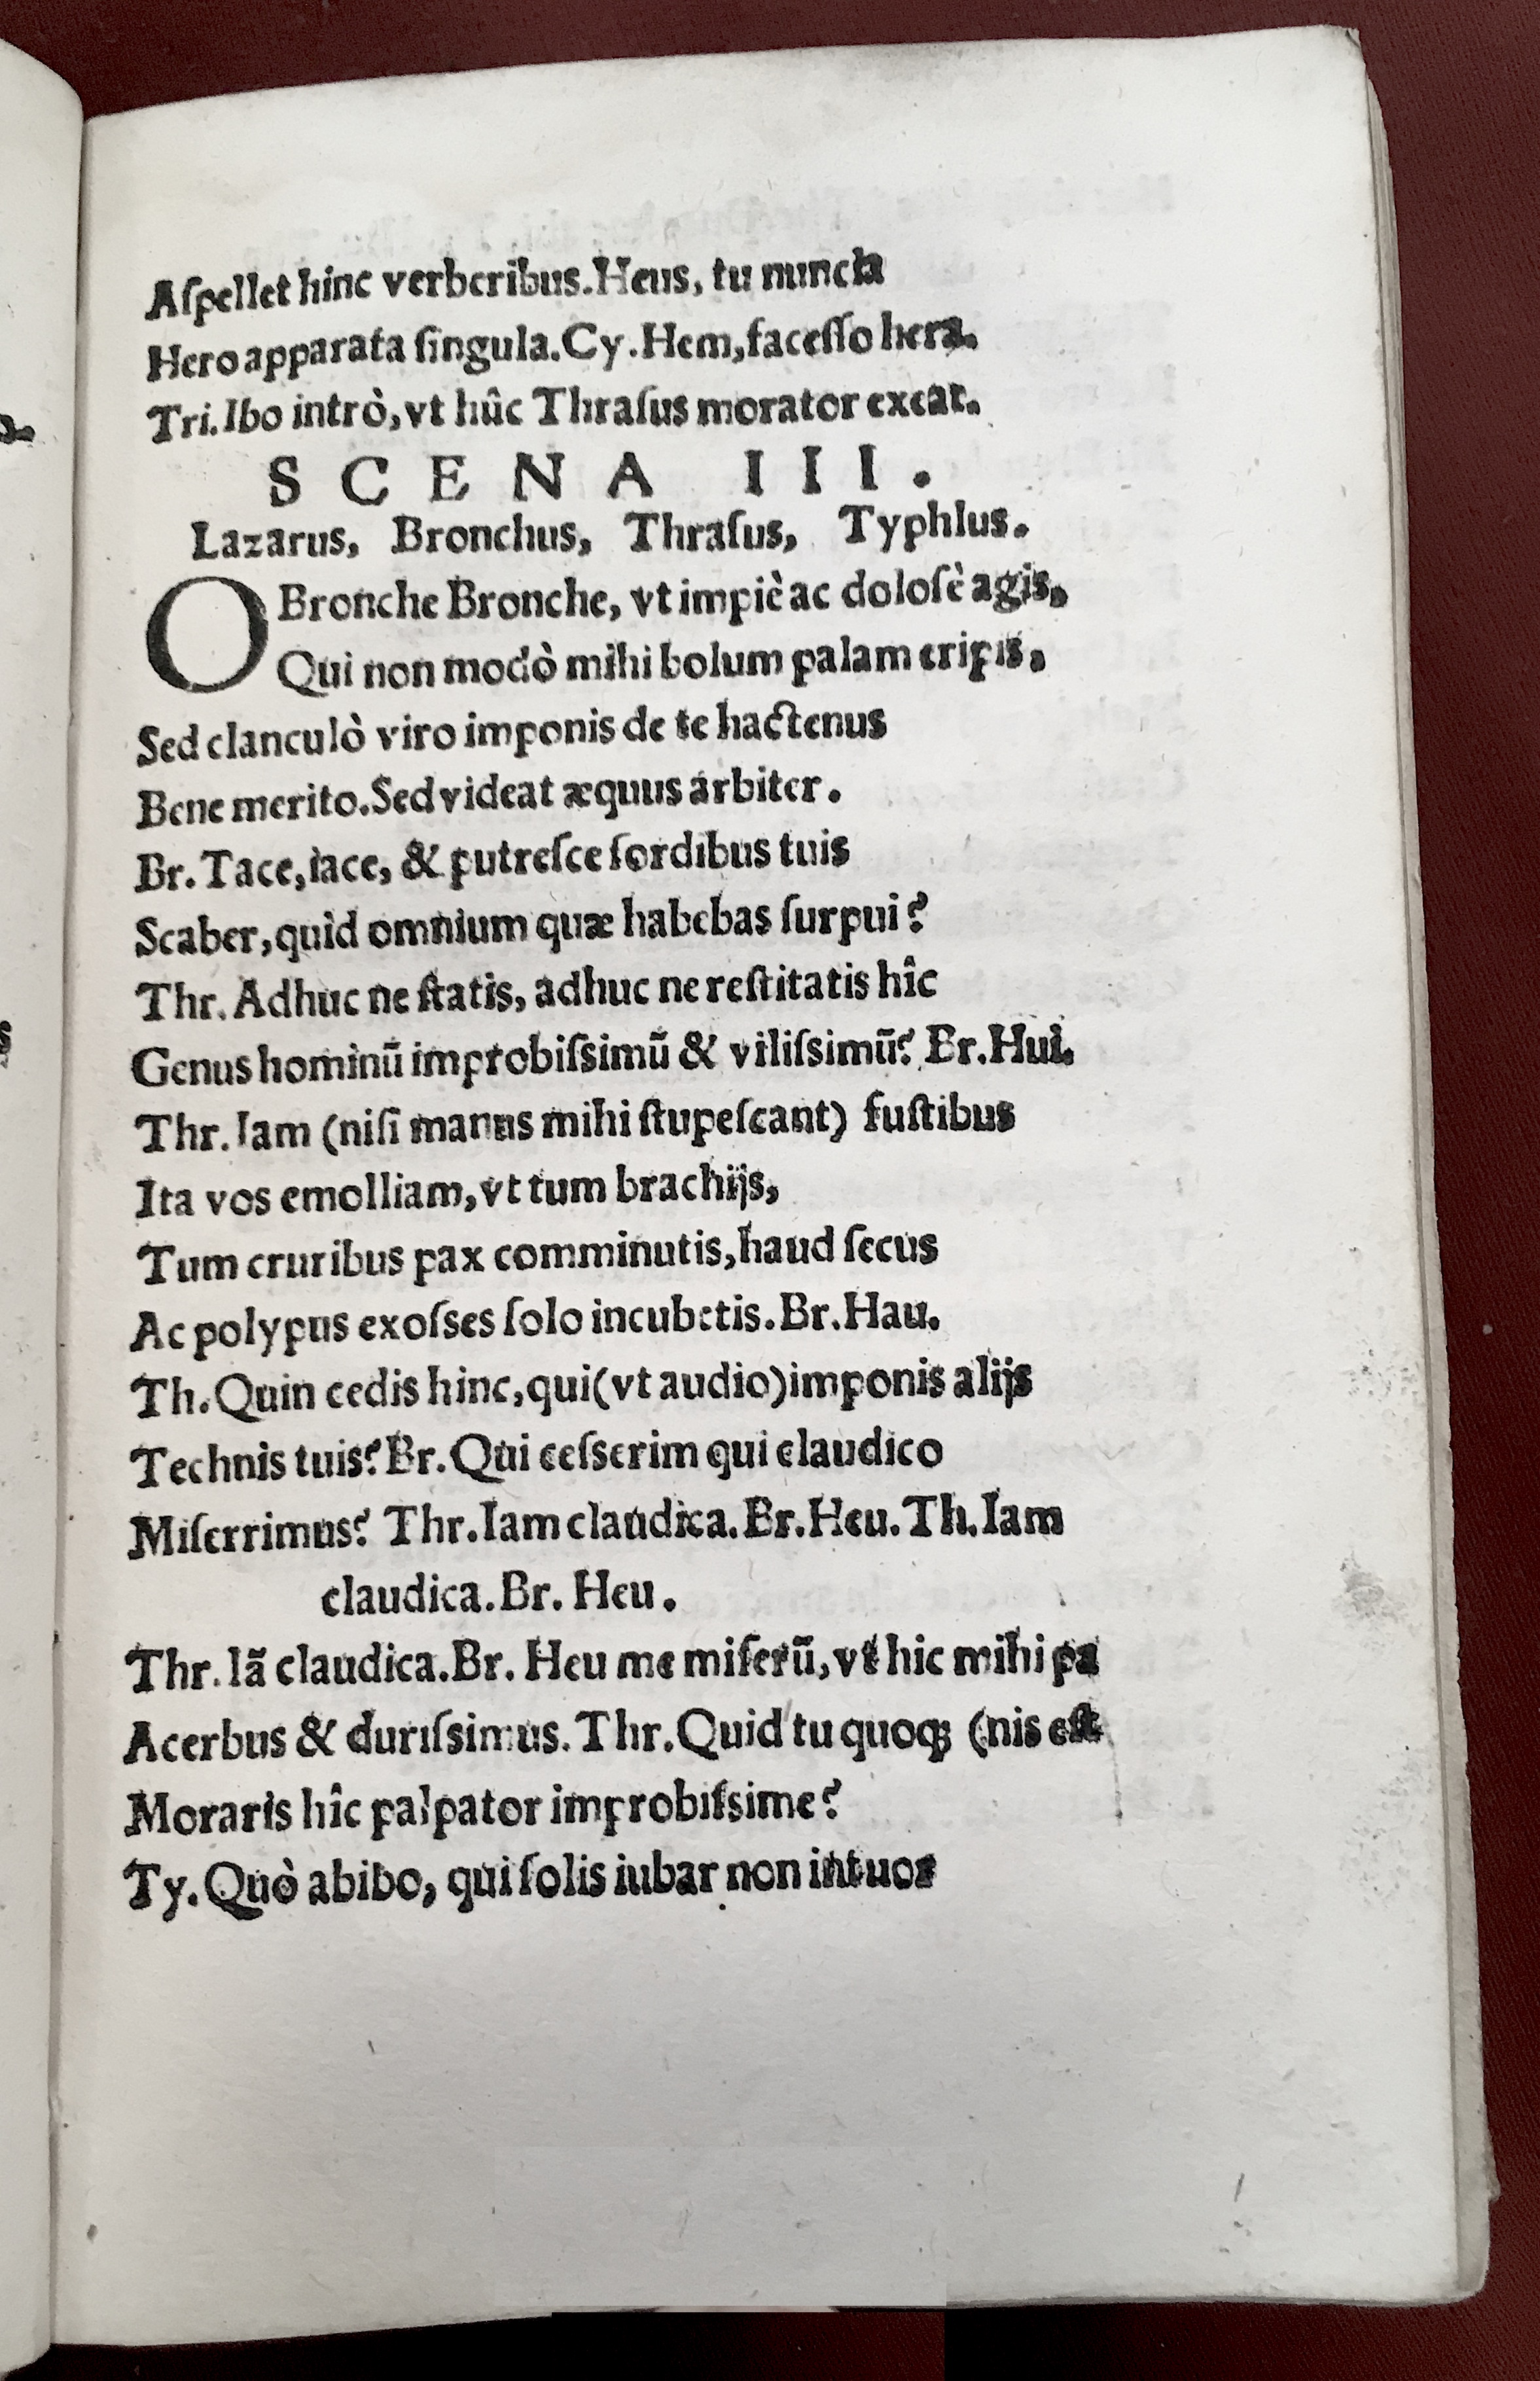 Aſpellet hinc verberibus. Heus, tu nuncia
Hero apparata ſingula. Cy. Hem, faceſſo hera.
Tri. Ibo intrò, vt hûc Thraſus morator exeat.
SCENA III.
Lazarus, Bronchus, Thraſus, Typhlus.
O Bronche Bronche, vt impiè ac doloſè agis,
Qui non modò mihi bolum palam eripis,
Sed clanculò viro imponis de te hactenus
Bene merito. Sed videat æquus arbiter.
Br. Tace, iace, & putreſce ſordibus tuis
Scaber, quid omnium quæ habebas ſurpui?
Thr. Adhuc ne ſtatis, adhuc ne reſtitatis hîc
Genus hominũ improbiſsimũ & viliſsimũ? Br. Hui.
Thr. Iam (niſi manus mihi ſtupeſcant) fuſtibus
Ita vos emolliam, vt tum brachijs,
Tum cruribus pax comminutis, haud ſecus
Ac polypus exoſses ſolo incubetis. Br. Hau.
Th. Quin cedis hinc, qui (vt audio) imponis alijs
Technis tuis? Br. Qui ceſserim qui claudico
Miſerrimus? Thr. Iam claudica. Br. Heu. Th. Iam
claudica. Br. Heu.
Thr. Iã claudica. Br. Heu me miſerũ, vt hic mihi pa
Acerbus & duriſsimus. Thr. Quid tu quoq; (nis eſt
Moraris hîc palpator improbiſsime?
Ty. Quò abibo, qui ſolis iubar non intuor